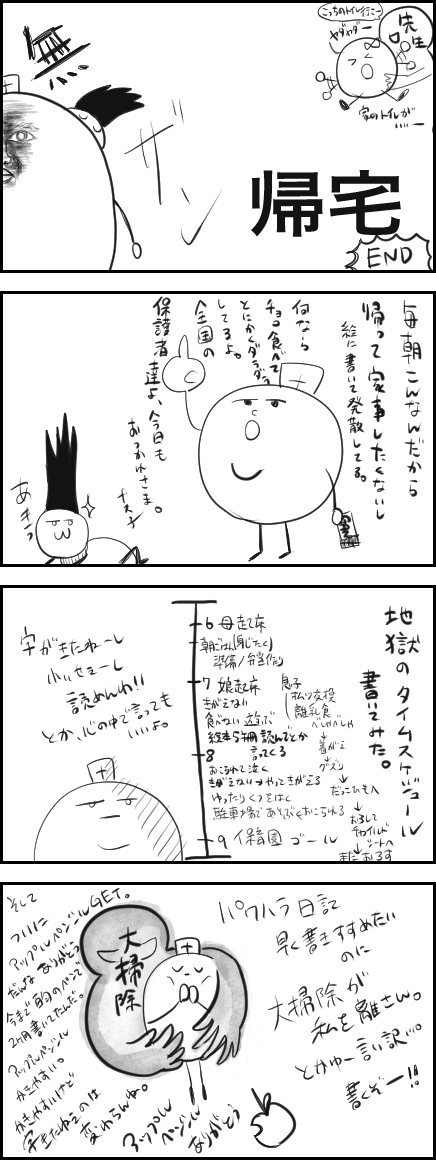 こっちのトイレ行こー
ヤダヤダー
先生
家のトイレが
いいー
ザ
ン
帰宅
END
毎朝こんなんだから
帰って家事したくないし
絵に書いて発散してる。
何なら
チョコ食べて
とにかくダラダラ
してるよ。
全国の
保護者達よ、今日も
おつかれさま。
あきら
地獄のタイムスケジュール
書いてみた。
6 母起床
朝ごはん(身じたく)
準備/弁当作り
7 娘起床
きがえない
食べない 遊ぶ
絵本5冊読んでとか
言ってくる
8
おこられて泣く
きがえない→やってきがえる
ゆったりくつをはく
駐車場であそぶ→おこられる
9 保育園 ゴール
息子
オムツ交換
離乳食
べしゃべしゃ
着がえ
グズン
だっこひもへ
おろして
チャイルド
シートへ
またおろす
字がきたねーし
小いせぇーし
読めんわ!!
とか、心の中で言っても
いいよ。
パワハラ日記
早く書きすすめたい
のに
大掃除が
私を離さん。
とかゆー言い訳…。
書くぞー!!
大掃除
そして
ついに
アップルペンシルGET。
だんなありがとう
今まで百均のペンで
2ヶ月書いてたんだ。
アップルペンシル
かきやすい。
かきやすいけど
字きたねぇのは
変わらんね。
アップル
ペンシル
ありがとう